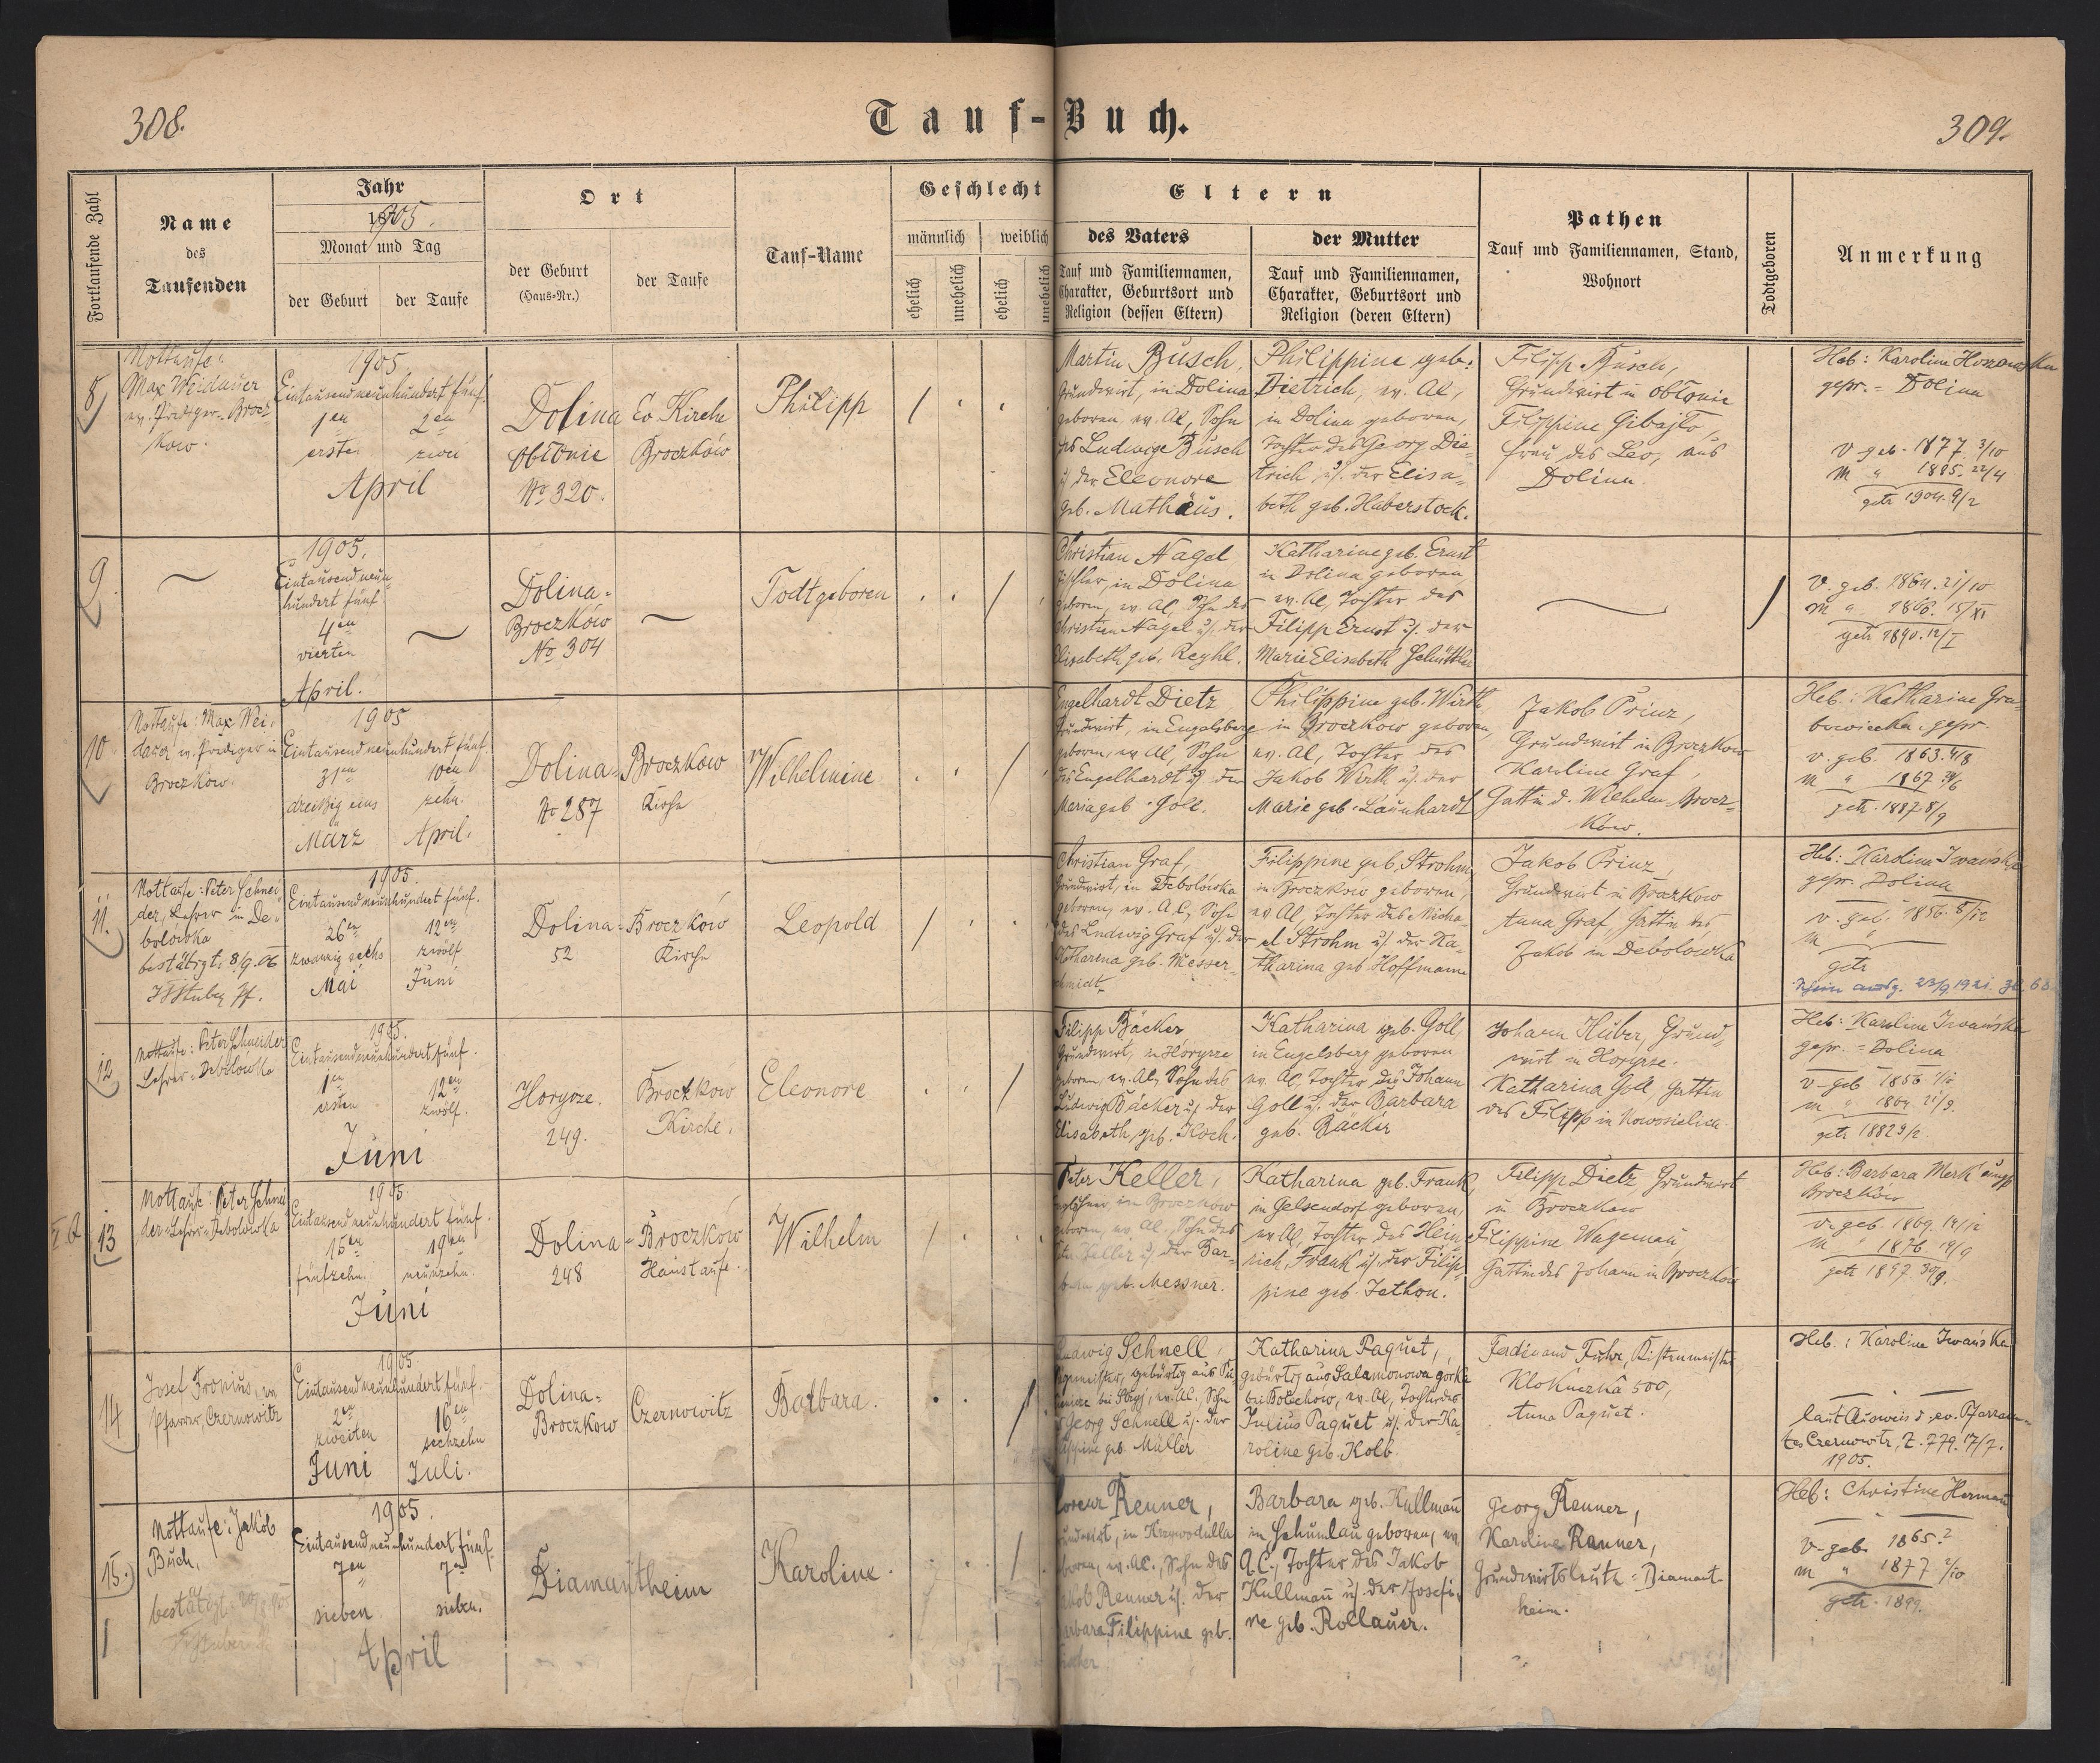 308.
Tauf-Buch.
309.
Fortlaufende Zahl
Name
des
Taufenden
Jahr
1905.
Monat und Tag
der Geburt
der Taufe
Ort
der Geburt
(Haus-Nr.)
der Taufe
Tauf-Name
Geschlecht
männlich
weiblich
ehelich
unehelich
ehelich
unehelich
Eltern
des Vaters
Tauf und Familiennamen,
Charakter, Geburtsort und
Religion (dessen Eltern)
der Mutter
Tauf und Familiennamen,
Charakter, Geburtsort und
Religion (deren Eltern)
Pathen
Tauf und Familiennamen, Stand,
Wohnort
Todtgeboren
Anmerkung
8
Nottaufe:
Max Weidauer
ev. Prediger - Brocz
kow.
1905
Eintausendneunhundert fünf.
1en
2en
ersten
zwei
April
Dolina
Obłonie
No 320.
Ev Kirche
Broczków
Philipp
/
Martin Busch,
Grundwirt, in Dolina
geboren, ev. Al, Sohn
des Ludwige Busch
u/. der Eleonore
geb. Mathäus.
Philippine geb:
Dietrich, ev. Al,
in Dolina geboren,
Tochter des Georg Die-
trich u/. der Elisa-
beth geb. Haberstock.
Filipp Busch,
Grundwirt in Obłonie
Filippine Gibajło,
Frau des Leo, aus
Dolina.
Heb: Karoline
gepr. = Dolina
V geb. 1877. 3/10
M " 1885. 22/4
getr 1904. 9/2
9
1905.
Eintausendneun
hundert fünf
4en
vierten
April.
Dolina-
Broczków
No 304
Todtgeboren
/
Christian Nagel
Tischler, in Dolina
geboren, ev. Al, Sohn des
Christian Nagel u/. der
Elisabeth geb. Reghl.
Katharine geb. Ernst
in Dolina geboren,
ev. Al, Tochter des
Filipp Ernst u/. der
Marie Elisabeth
/
V. geb. 1864. 21/10
M " 1866. 15/XI
getr 1890. 12/I
10
Nottaufe: Max Wei-
dauer ev. Prediger in
Broczków.
1905
Eintausend neunhundert fünf.
31en
10en
dreißig eins
zehn.
März
April.
Dolina-
No 287
Broczkow
Kirche
Wilhelmine
/
Engelhardt Dietz
Grundwirt, in Engelsberg
geboren, ev. Al, Sohn
des Engelhardt u/. der
Maria geb. Goll.
Philippine geb. Wirth
in Broczkow geboren,
ev. Al, Tochter des
Jakob Wirth u/. der
Marie geb. Launhardt
Jakob Prinz,
Grundwirt in Broczkow
Karoline Graf,
Gattin d. Wilhelm - Brocz-
kow.
Heb.: Katharine Gra-
bowiecka - gepr.
V. geb. 1863. 4/8
M " 1867
getr. 1887 8/9
11.
Nottaufe: Peter Schnei
der, Lehrer in De-
bolówka
bestätigt, 8/9.06
1905.
Eintausend neunhundert fünf.
26en
12en
zwanzig sechs
zwölf
Mai
Juni
Dolina-
52
Broczków
Kirche
Leopold
/
Christian Graf,
Grundwirt, in Debolówka
geboren, ev. A.C, Sohn
des Ludwig Graf u/. der
Katharina geb. Messer-
schmidt
Filippine geb. Strohm
in Broczków geboren,
ev. Al, Tochter des Micha-
el Strohm u/. der Ka-
tharina geb Hoffmann
Jakob Prinz,
Grundwirt in Broczkow
Anna Graf, Gattin des
Jakob in Debolowka
Heb: Karolina Iwańska
gepr. Dolina
V. geb. 1856. 8/12
M "
getr
12
Nottaufe: Peter Schneider
Lehrer = Debolówka
1905.
Eintausendneunhundert fünf.
1en
12en
ersten
zwölf.
Juni
Horysze.
249.
Broczków
Kirche.
Eleonore
/
Filipp Bäcker
Grundwirt, in Horysze
geboren, ev. Al, Sohn des
Ludwig Bäcker u/. der
Elisabeth, geb. Koch.
Katharina geb. Goll
in Engelsberg geboren
ev. Al, Tochter des Johann
Goll u/. der Barbara
geb. Bäcker
Johann Huber, Grund-
wirt in Horysze.
Katharina Goll, Gattin
des Filipp in Nowosielica
Heb: Karoline Iwańska
gepr. = Dolina
V - geb 1856
M " 1864 21/9.
getr 1882
13
Nottaufe: Peter Schnei
der = Lehrer = Debolowka
1905.
Eintausend neunhundert fünf.
15en
19en
fünfzehn.
neunzehn.
Juni
Dolina-
248
Broczków
Haustaufe.
Wilhelm
/
Peter Keller,
in Broczków
geboren, ev. Al., Sohn des
Keller u/. der Bar-
bara geb. Messner.
Katharina geb. Frank
in Gelsendorf geboren,
ev Al, Tochter des Hein
rich, Frank u/. der Filip-
pine geb. Jethon.
Filipp Dietz, Grundwirt
in Broczkow
Filippine Wageman,
Gattin des Johann in Broczków
Heb: Barbara Merk
Broczków
V. geb 1869. 14/12
M " 1876. 19/9
getr 1897
14
Josef Fronius, ev
Pfarrer, Czernowitz
1905.
Eintausendneunhundert fünf.
2en
16en
zweiten
sechzehn
Juni
Juli.
Dolina-
Broczkow
Czernowitz
Barbara.
/
Ludwig Schnell,
gebürtig aus
bei Stryj, ev. Al., Sohn
Georg Schnell u/. der
geb. Müller
Katharina Paquet,
gebürtig aus Salamonowa górka
bei Bolechów, ev. Al, Tochter des
Julius Paquet u/. der Ka-
roline geb. Kolb
Ferdinand Fuhr,
Klokuczka 500,
Anna Paquet.
Heb.: Karoline Iwańska
laut Ausweis d. ev. Pfarram-
tes Czernowitz, Z. 779. 17/7.
1905.
15.
Nottaufe: Jakob
Buch,
bestätigt
1905.
Eintausend neunhundert fünf.
7en
7en
sieben
sieben.
April
Diamantheim
Karoline.
/
Lorenz Renner,
Grundwirt, in
geboren, ev. A.C., Sohn des
Jakob Renner u/. der
Barbara Filippine geb.
Barbara geb. Kullmann
in Schumlau geboren, ev.
A.C., Tochter des Jakob
Kullmann u/. der Josefi-
ne geb. Rollauer.
Georg Renner,
Karoline Renner,
Grundwirtsleute = Diamant-
heim.
Heb: Christine Herman
V - geb. 1865.?
M " 1877 2/10
getr. 1899.